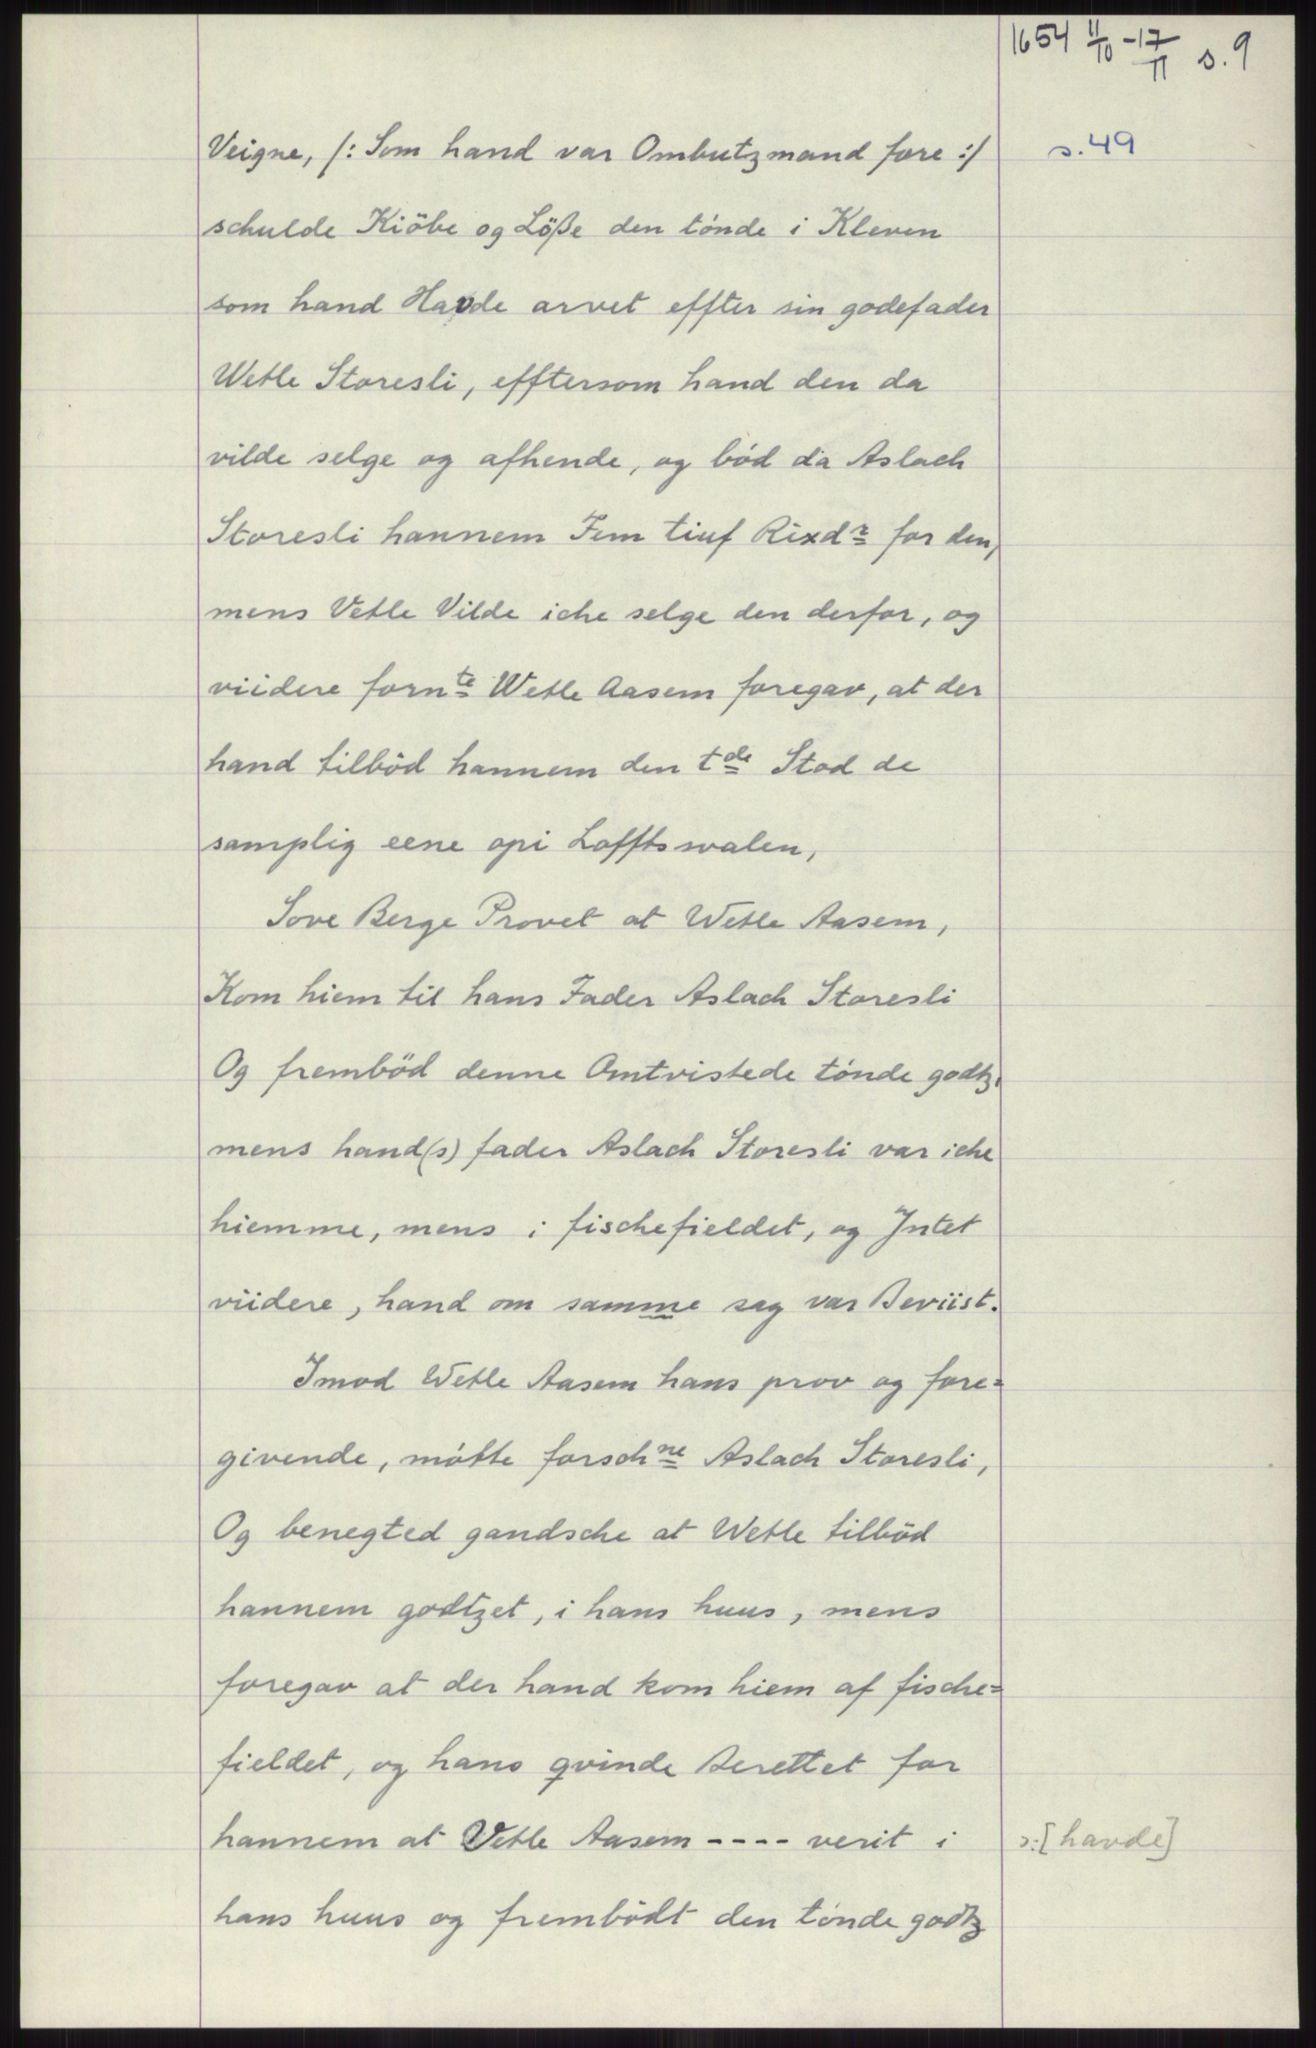 1654 11/10 - 17/11 s. 9
s. 49
Veigne, /: Som hand var Ombutzmand fore :/
schulde Kiöbe og Löße den tónde i Kleven
som hand Havde arvet effter sin godefader
Wetle Storesli, efftersom hand den da
vilde selge og afhende, og bód da Aslach
Storesli hannem Fem tiuf Rixdr for den,
mens Vetle Vilde iche selge den derfor, og
viidere fornte Wetle Aasem foregav, at der
hand tilböd hannem den tde Stod de
samplig eene opi Lofftswalen,
Sove Berge Provet at Wetle Aasem,
Kom hiem til hans Fader Aslach Storesli
Og fremböd denne Omtvistede tónde godtz,
mens hand(s) fader Aslach Storesli var iche
hiemme, mens i fischefieldet, og Jntet
viidere, hand om samme sag var Beviist.
Imod Wetle Aasem hans prov og fore=
givende, mótte forschne Aslach Storesli,
Og benegted gandsche at Wetle tilböd
hannem godtzet, i hans huus, mens
foregav at der hand kom hiem af fische=
fieldet, og hans qvinde Berettet for
hannem at Vetle Aasem ---- verit i
ɔ: [havde]
hans huus og frembödt den tónde godtz